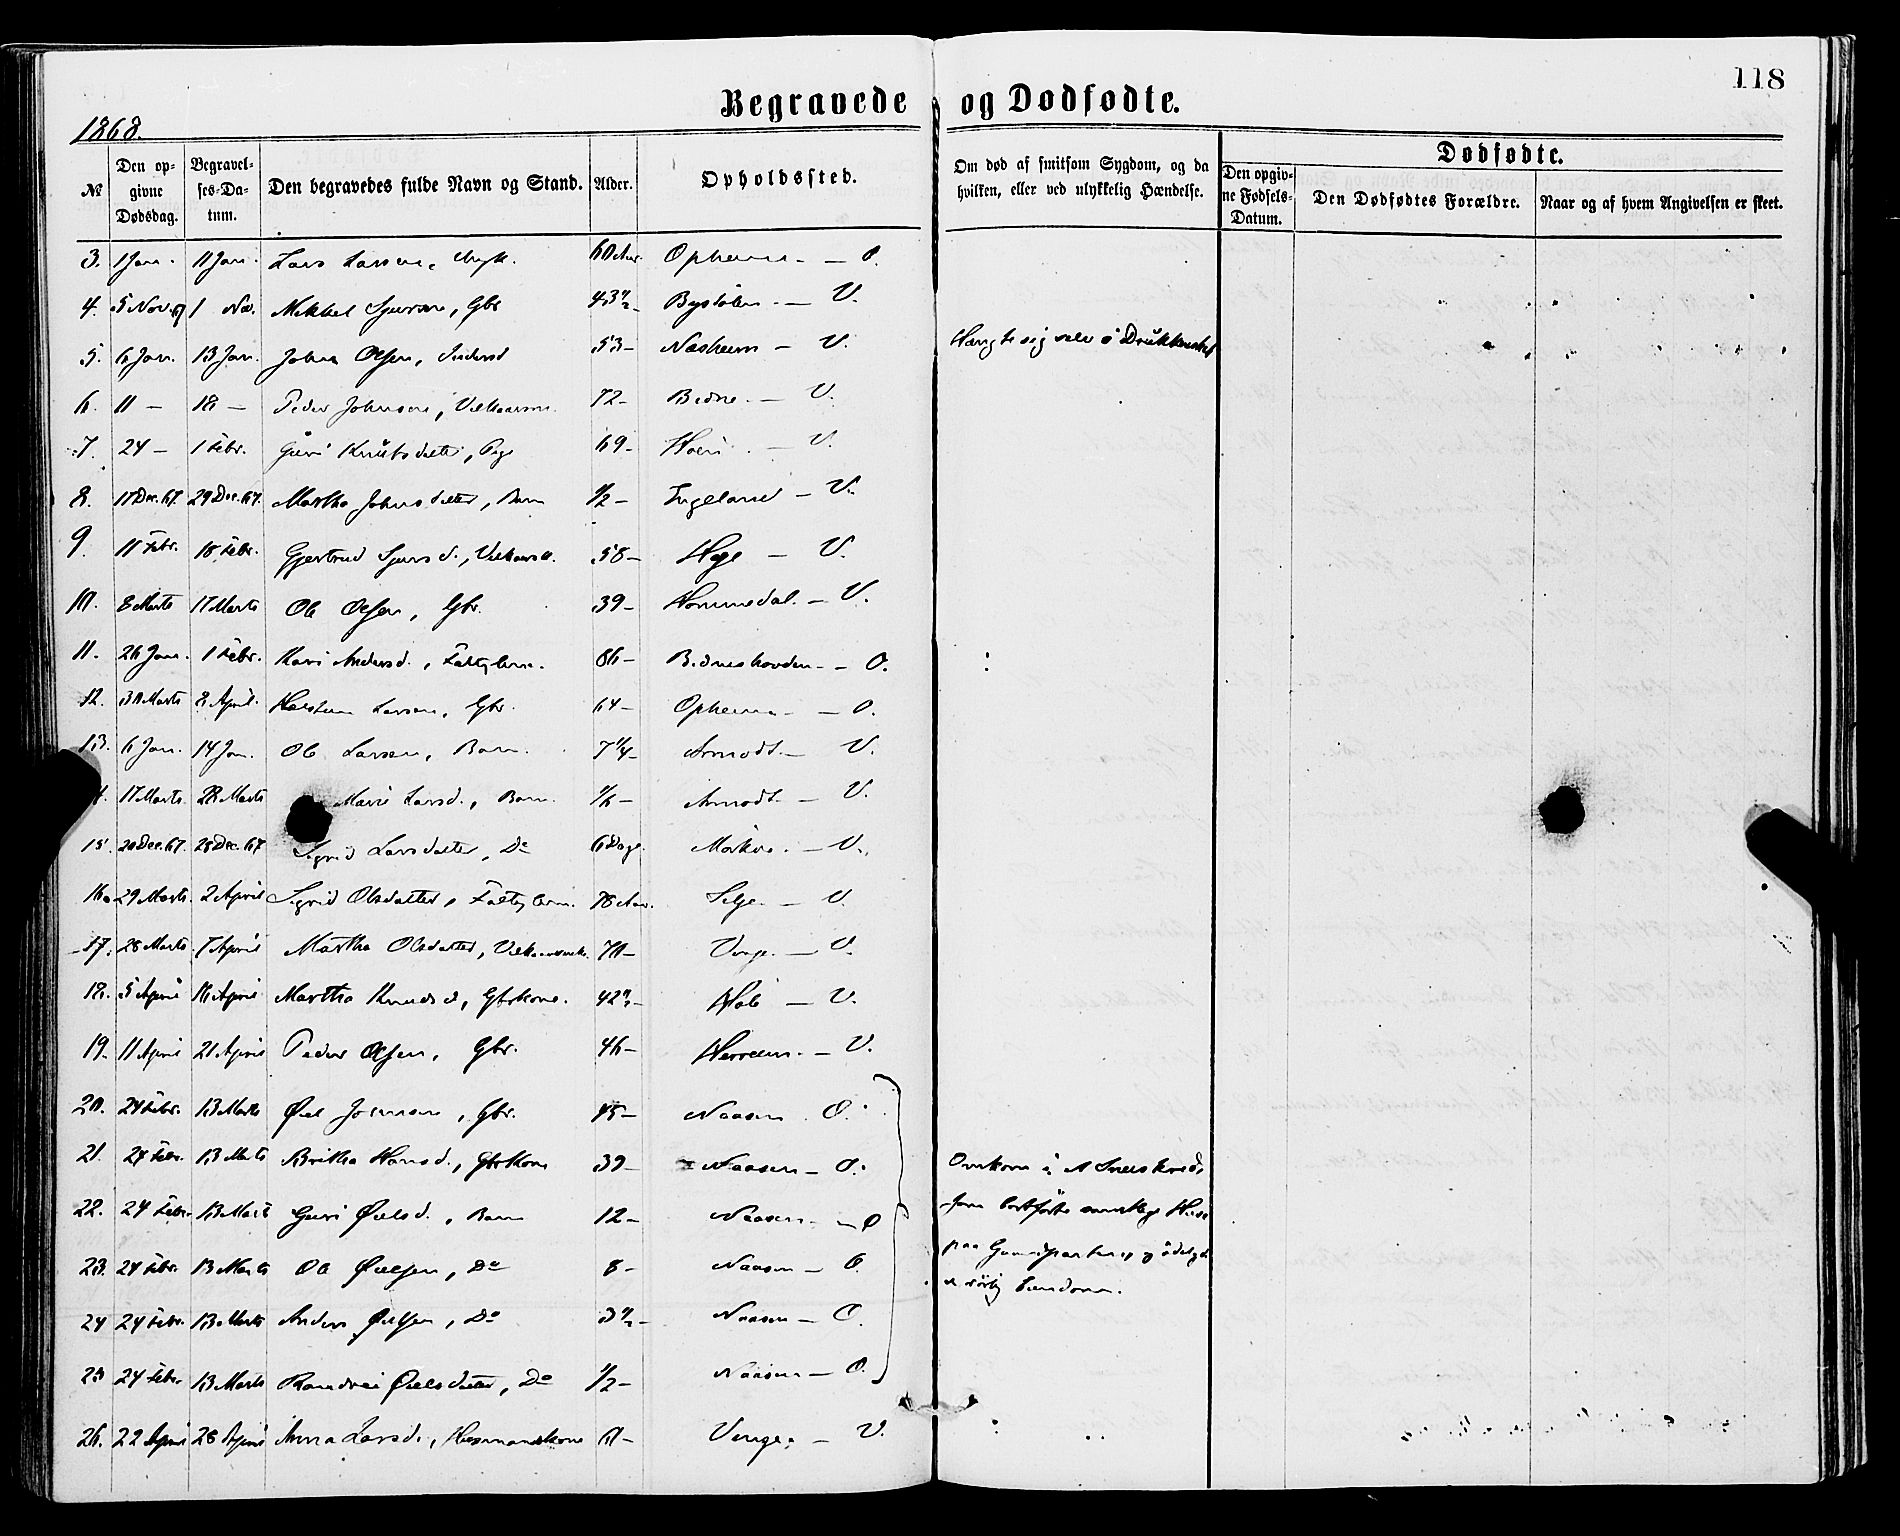 118
Begravede og Dødfødte.
1868.
№ Den op-givne Dødsdag. Begravel-ses-Da-tum. Den begravedes fulde Navn og Stand. Alder. Opholdssted. Om død af smitsom Sygdom, og da hvilken, eller ved ulykkelig Hændelse. Dødfødte. Den opgiv-ne Fødsels-Datum. Den Dødfødtes Forældre. Naar og af hvem Angivelsen er skeet.
3. 1 Jan. 11 Jan. Lars Larsen, 60 Aar. Opheim - O.
4. 5 Nov. 67 1 Mikkel Sjursen, Gbr 43½ - V.
5. 6 Jan. 13 Jan. Johan Olsen, 53 - Nasheim - V. Hængte sig selv i Drukkenskab
6. 11 - 18 - Peder Johnsen, 72 - Bidne - V.
7. 24 - 1 Febr. Guri Knutsdatter, Pige 69 - - V.
8. 17 Dec. 67. 29 Dec. 67. Martha Johnsdatter, Barn ½ - Ingeland - V.
9. 11 Febr. 18 Febr. Gjertrud Sjursd., 58 - Hæge - V.
10. 8 Marts 17 Marts Ole Olsen, Gbr. 39 - Hommedal - V.
11. 26 Jan. 1 Febr. Kari Andersd., Fattiglem. 86 - Bidneshovden - O.
12. 30 Marts 8 April. Halstein Larsen, Gbr. 64 - Opheim - O.
13. 6 Jan. 14 Jan. Ole Larsen, Barn. 7¼ - Armodt - V.
17 Marts. 28 Marts Mari Larsd., Barn. - Armodt - V.
15. 20 Dec. 67. 28 Dec. 67 Sigrid Larsdatter, Do 6 Dage. Mørkve - V.
16. 29 Marts. 2 April Sigrid Olsdatter, Fattiglem. 78 Aar. Selje - V.
17. 28 Marts 7 April Martha Olsdatter, 70 - Vinge - V.
18. 5 April 16 April Martha Knudsd, Gbrkone. 42½ - - V.
19. 11 April 21 April Peder Olsen, Gbr. 46 - Herreim - V.
20. 24 Febr. 13 Marts Øiel Gbr. 45 - Naasen O.
21. 24 Febr. 13 Marts Britha Hansd., Gbrkone 39 - Naasen - O. Omkom i et Sneeskred,
22. 24 Febr. 13 Marts Guri Øielsd., Barn 12 - Naasen - O som bortførte samtlige Huse
23. 24 Febr. 13 Marts Ole Øielsen, Do 8 - Naasen - O. paa Gaardparten, og ødelagde
24 24 Febr. 13 Marts Anders Øielsen, Do 3½ - Naasen - O. Eiendom.
25 24 Febr. 13 Marts Randvei Øielsdatter, Do ½ - Naasen - O.
26. 22 April 28 April Anna Larsd., Husmandskone - Vinge - V.